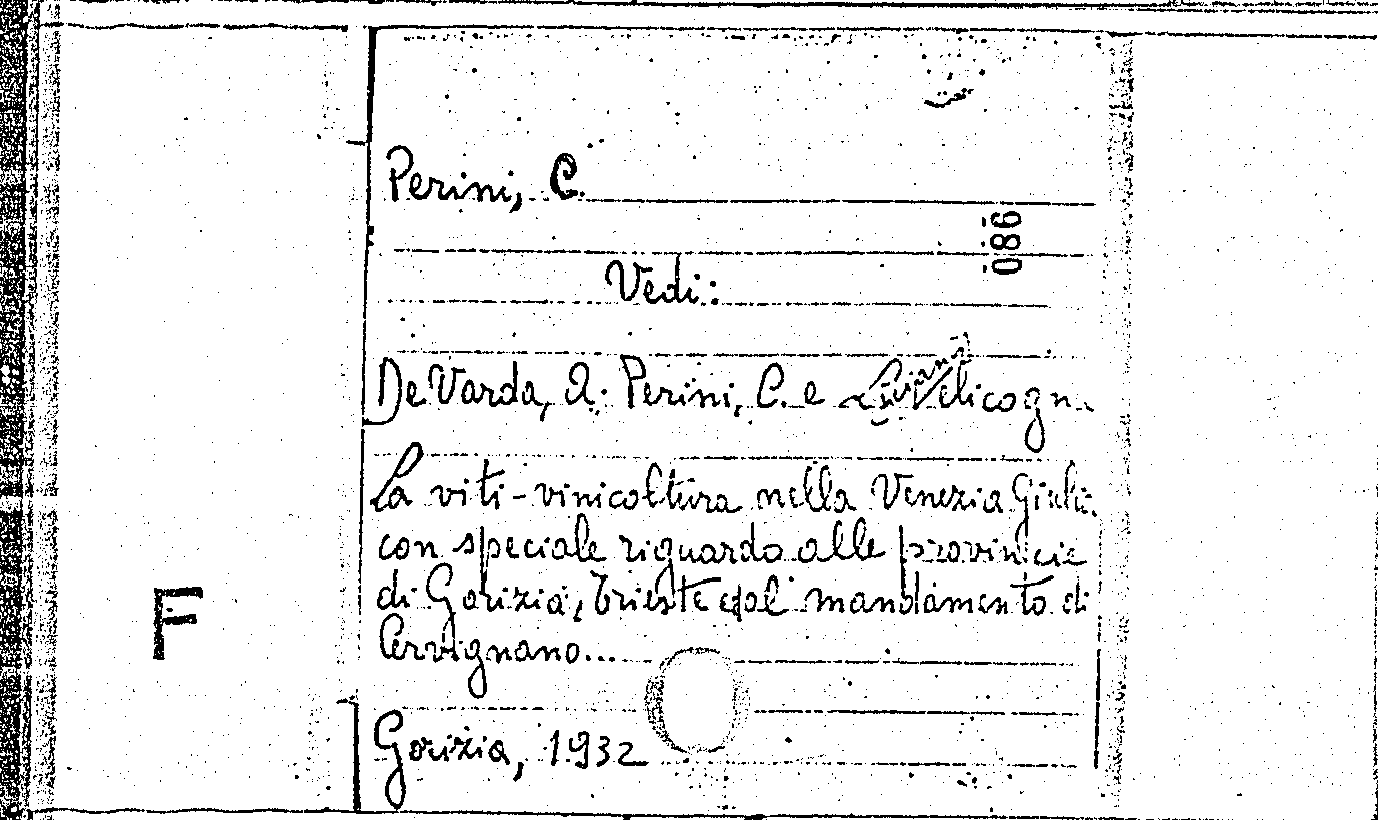 Perini, C.
086
Vedi:
De Varda, A. Perini, C. e
La viti-vinicoltura nella Venezia Giulia
con speciale riguardo alle provincie
di Gorizia, Trieste e al mandamento di
Cervignano...
Gorizia, 1932
F